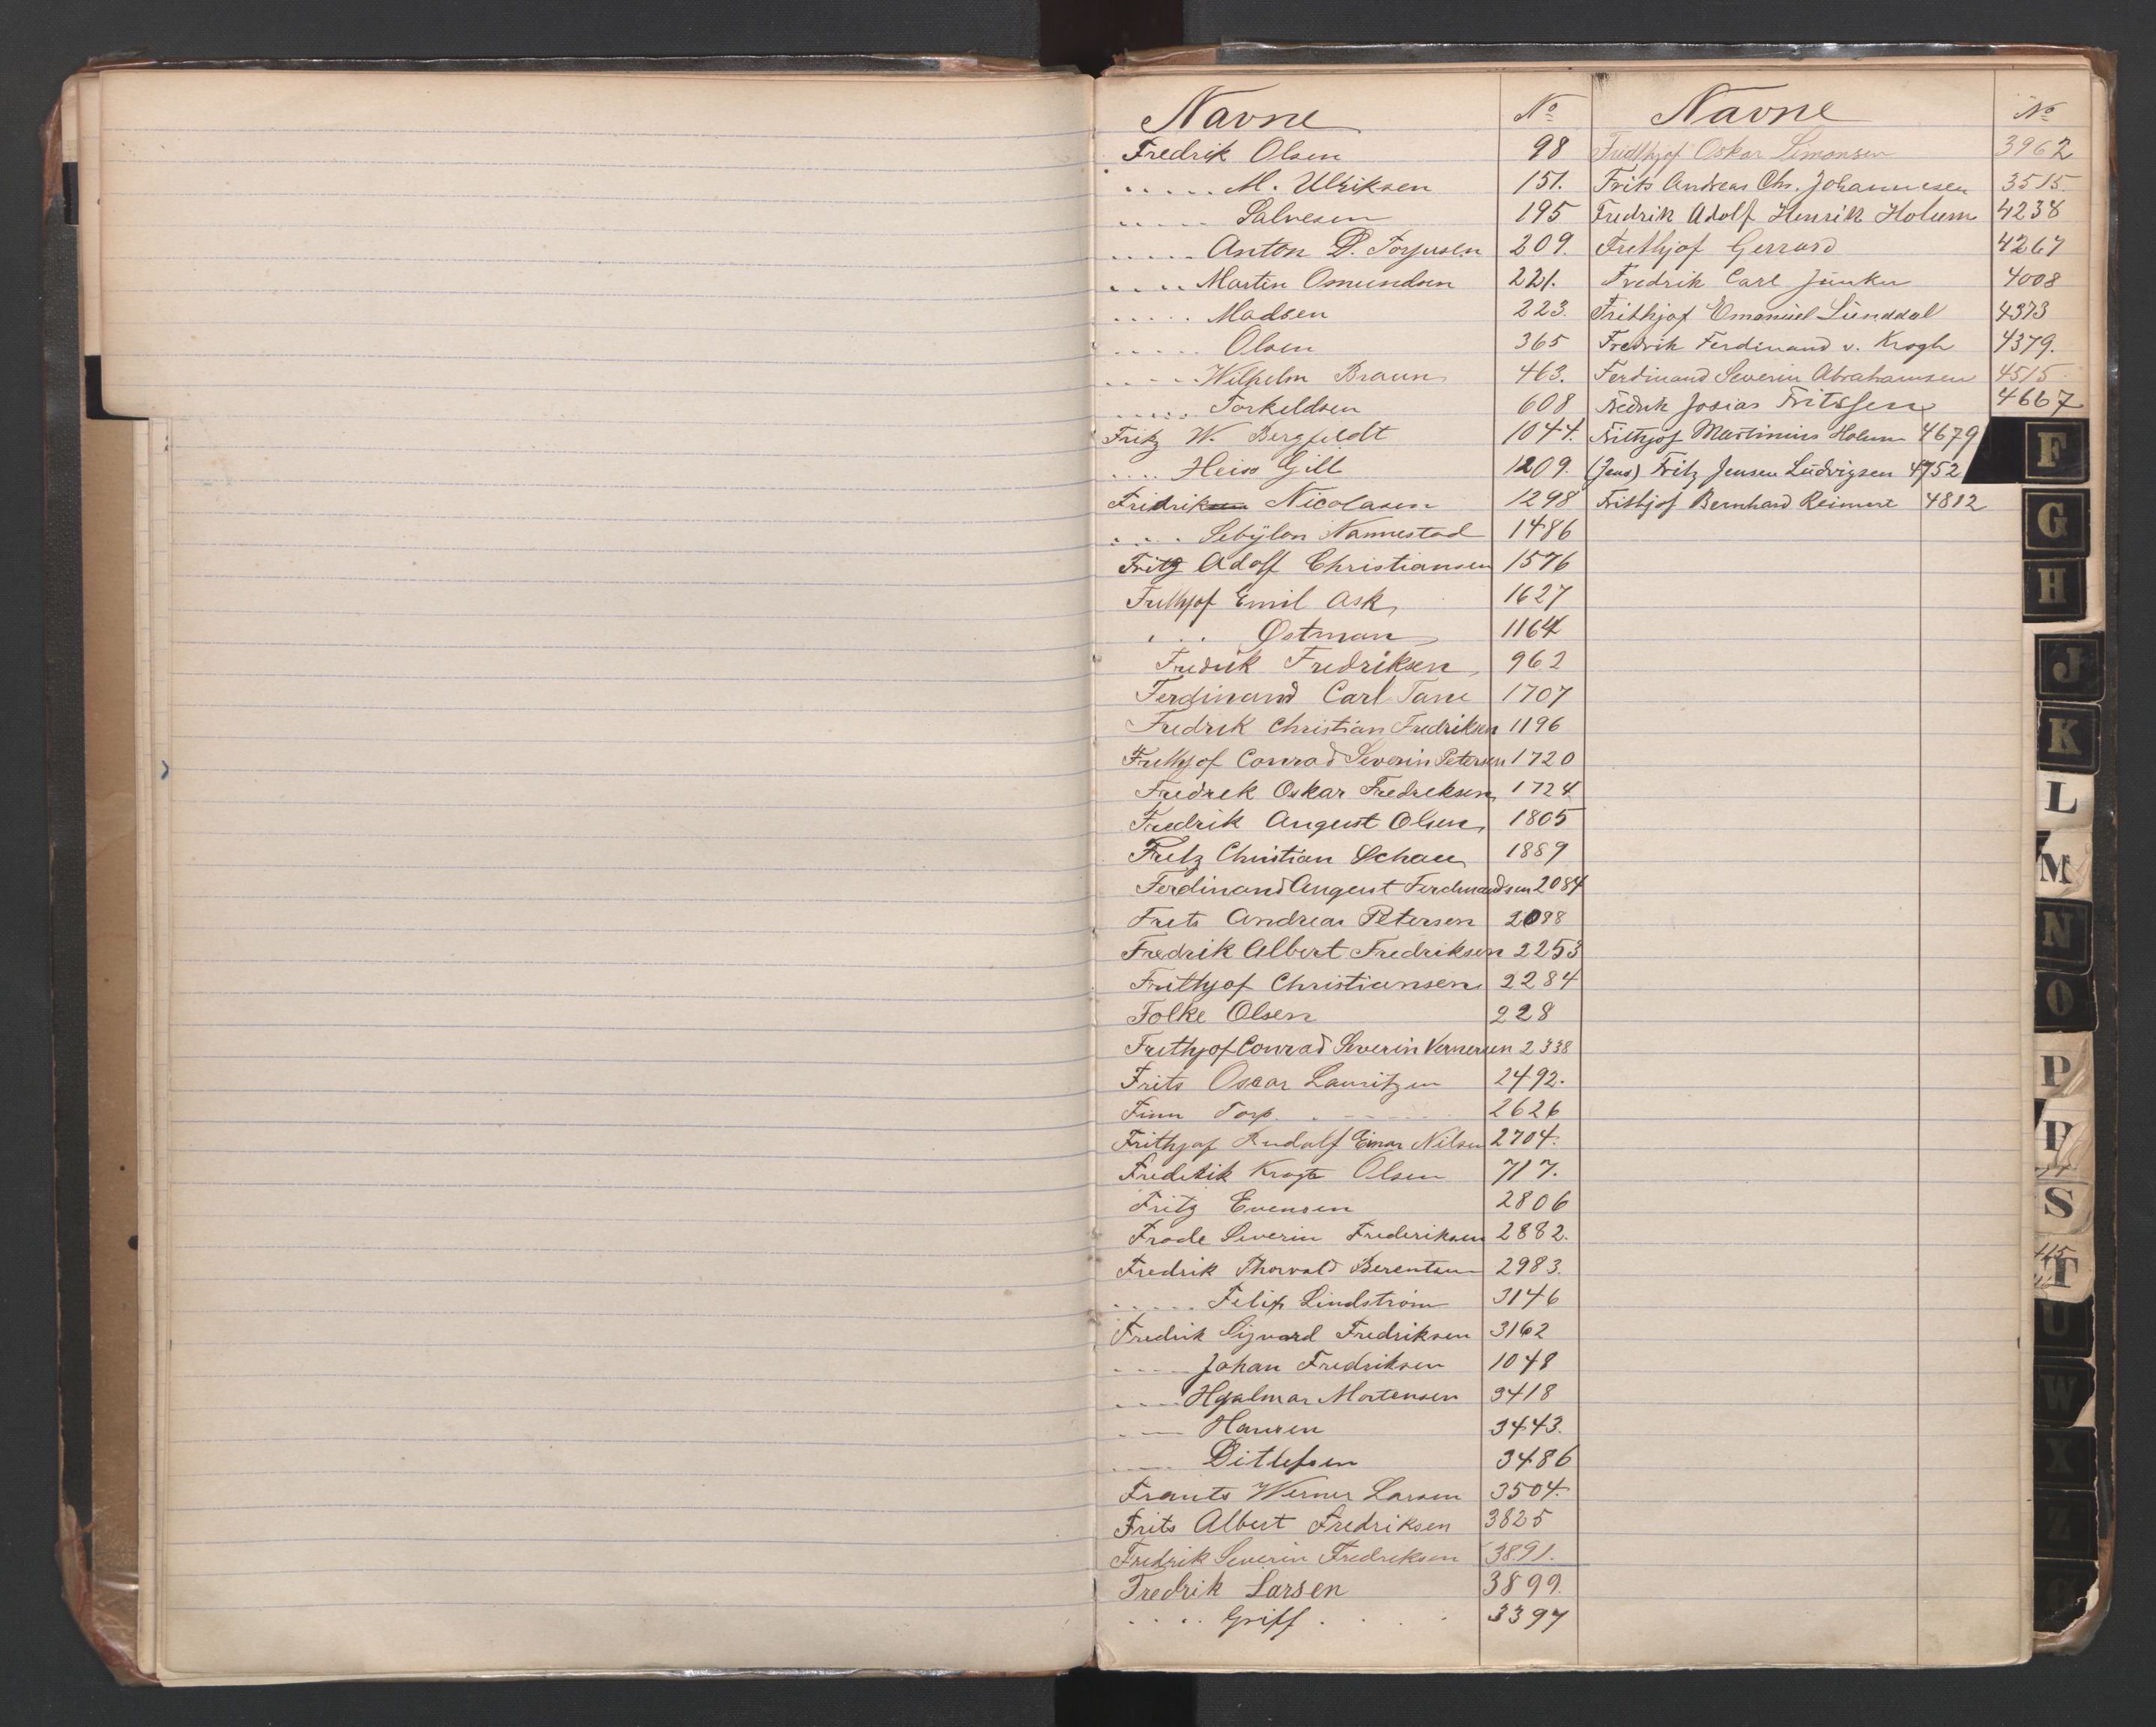 Navne No
Fredrik Olsen 98
..... M. Ulriksen 151.
..... Salvesen 195
..... Anton D. Torjusen 209.
..... Martin Osmundsen 221.
..... Madsen 223.
..... Olsen 365
..... Wilhelm Braun 463.
..... Torkeldsen 608
Fritz W. Bergfeldt 1044.
.... Heiso Gill 1209.
Fridrik Nicolasen 1298
.... Nannestad 1486
Fritz Adolf Christiansen 1576
Frithjof Emil Ask 1627
... Østman 1164
Fredrik Fredriksen 962
Ferdinand Carl Tane 1707
Fredrik Christian Fredriksen 1196
Frithjof Conrad Severin Petersen 1720
Fredrek Oskar Fredreksen 1724
Fredrik August Olsen 1805
Fritz Christian Schau 1889
Ferdinand August Ferdinandsen 2084
Frets Andreas Petersen 2098
Fredrik Albert Fredriksen 2253
Frithjof Christiansen 2284
Folke Olsen 228
Frethjof Conrad Severin Vernersen 2338
Frits Oscar Lauritzen 2492.
Finn Torp 2626
Frithjof Rudolf Einar Nilsen 2704.
Fredrik Krogh Olsen 717.
Fritz Evensen 2806
Frode Severin Frederiksen 2882.
Fredrik Thorvald Berentsen 2983.
..... Felix Lindstrøm 3146
Fredrik Sigvard Fredriksen 3162
.... Johan Fredriksen 1048
.... Hjalmar Mortensen 3418
.... Hansen 3443.
.... Ditlefsen 3486
Frants Werner Larsen 3504.
Frits Albert Fredriksen 3825
Fredrik Severin Fredreksen 3891.
Fredrik Larsen 3899.
.... Griff 3397
Navne No
Fridthjof Oskar Simonsen 3962
Frits Andreas Chr. Johannesen 3515.
Fredrik Adolf Henrik Holum 4238
Frethjof Gerrard 4267
Fredrik Carl Junker 4008
Frithjof Emanuel Lunddal 4373
Fredrik Ferdinand v. Krogh 4379.
Ferdinand Severin Abrahamsen 4515
Fredrik Josias Fritssen 4667
Frithjof Martinius Holum 4679
(Jens) Fritz Jensen Ludvigsen 4752
Frithjof Bernhard Reimert 4812
F
G
H
J
K
L
M
N
O
P
S
T
U
W
X
Z